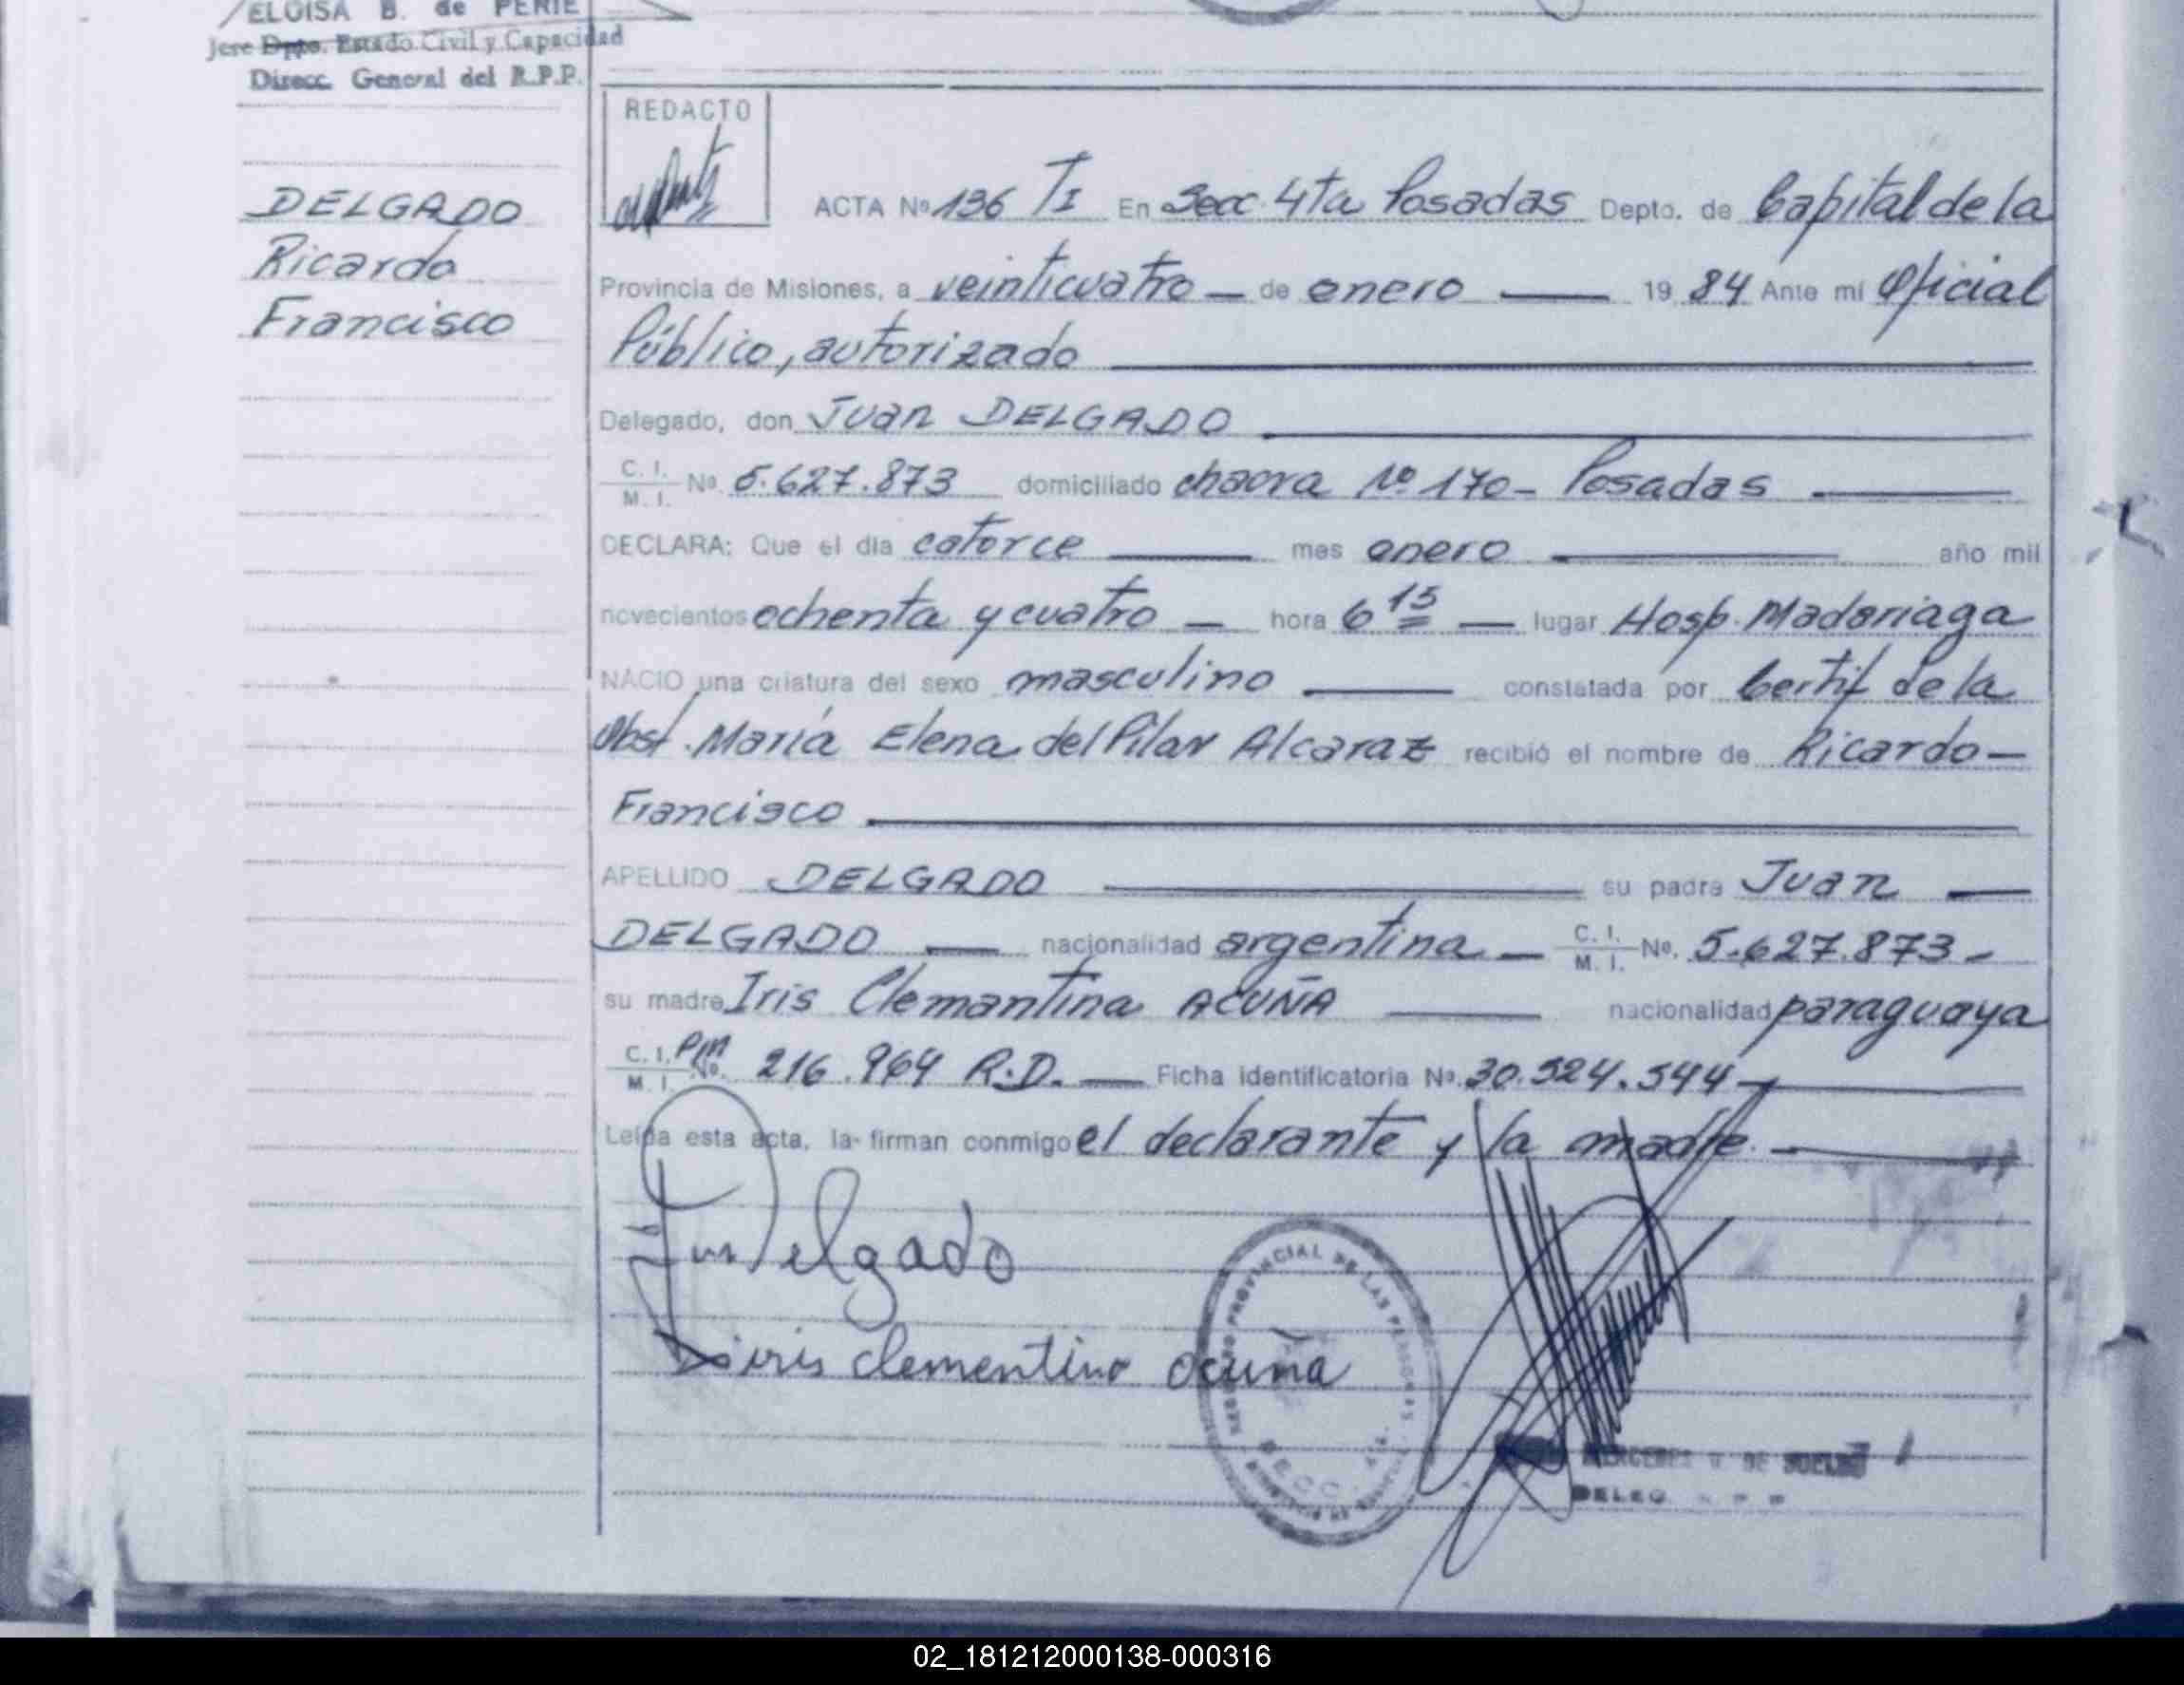 ELOISA B. de PERIE
Jefe Dpto. Estado Civil y Capacidad
Direcc. General del R.P.P.
DELGADO
Ricardo
Francisco
REDACTO
ACTA Nº 136 TI En Secc. 4ta Posadas Depto. de Capital de la
Provincia de Misiones, a veinticuatro — de enero — 19 84 Ante mí Oficial
Público, autorizado
Delegado, don Juan DELGADO
C. I. / M. I. Nº 5.627.873 domiciliado chacra Nº 170 - Posadas
DECLARA: Que el día catorce — mes enero — año mil
novecientos ochenta y cuatro — hora 6 15 — lugar Hosp. Madariaga
NACIO una criatura del sexo masculino — constatada por Certif de la
Obst. María Elena del Pilar Alcaraz recibió el nombre de Ricardo —
Francisco
APELLIDO DELGADO — su padre Juan —
DELGADO — nacionalidad argentina — C. I. / M. I. Nº. 5.627.873 -
su madre Iris Clemantina ACUÑA — nacionalidad paraguaya
C. I. / M. I. PM Nº. 216.964 R.D. — Ficha identificatoria Nº. 30.524.544 —
Leída esta acta, la firman conmigo el declarante y la madre. —
Juan Delgado
iris clementina acuna
REGISTRO PROVINCIAL DE LAS PERSONAS
SECC. 4ta.
MERCEDES V. DE
DELEG. R P P
02_181212000138-000316